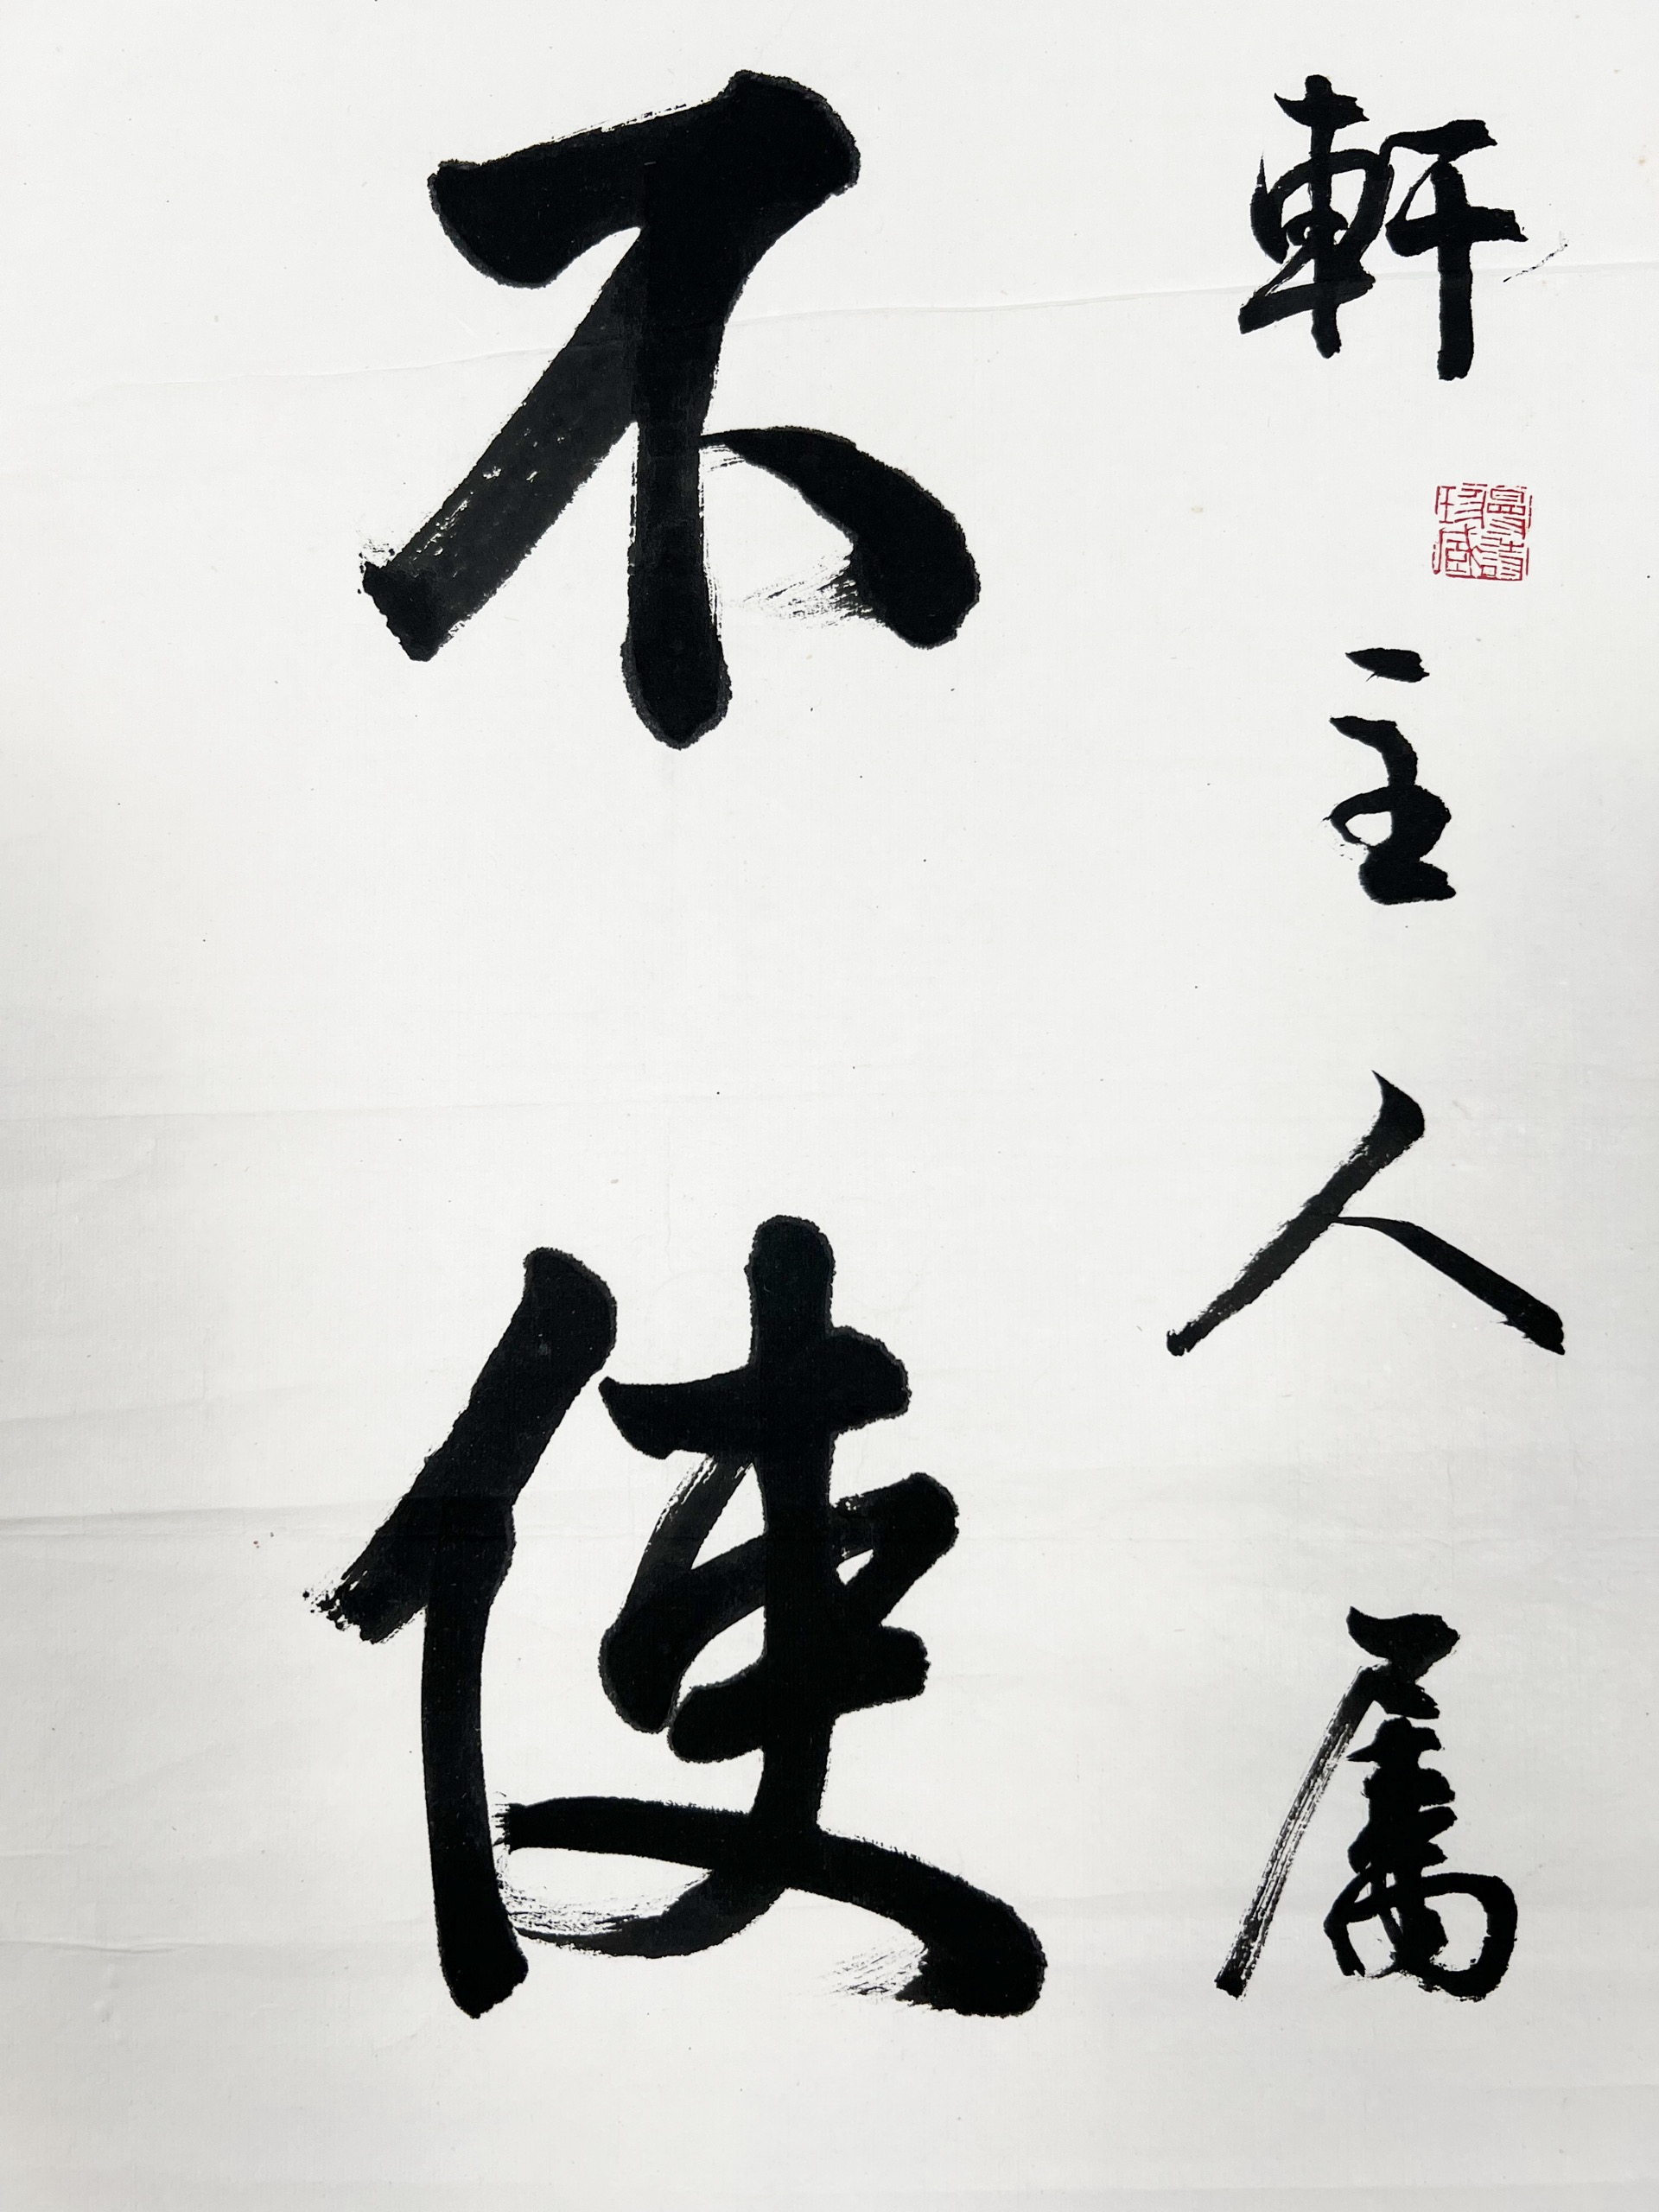 軒主人屬
不使